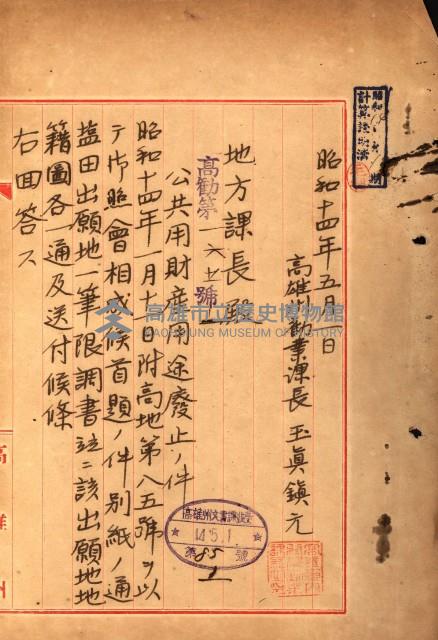 昭和十四年五月 日
高雄州勧業課長 玉眞鎮元
地方課長殿
高勧第一六七號
公共用財産用途廢止ノ件
昭和十四年一月十日附高地第八五號ヲ以
テ御照會相成候首題ノ件別紙ノ通
塩田出願地一筆限調書竝ニ該出願地地
籍圖各一通及送付候條
右回答ス
高雄州文書課收受
14.5.1
第85號
1
高雄市立歷史博物館
KAOHSIUNG MUSEUM OF HISTORY
高雄州